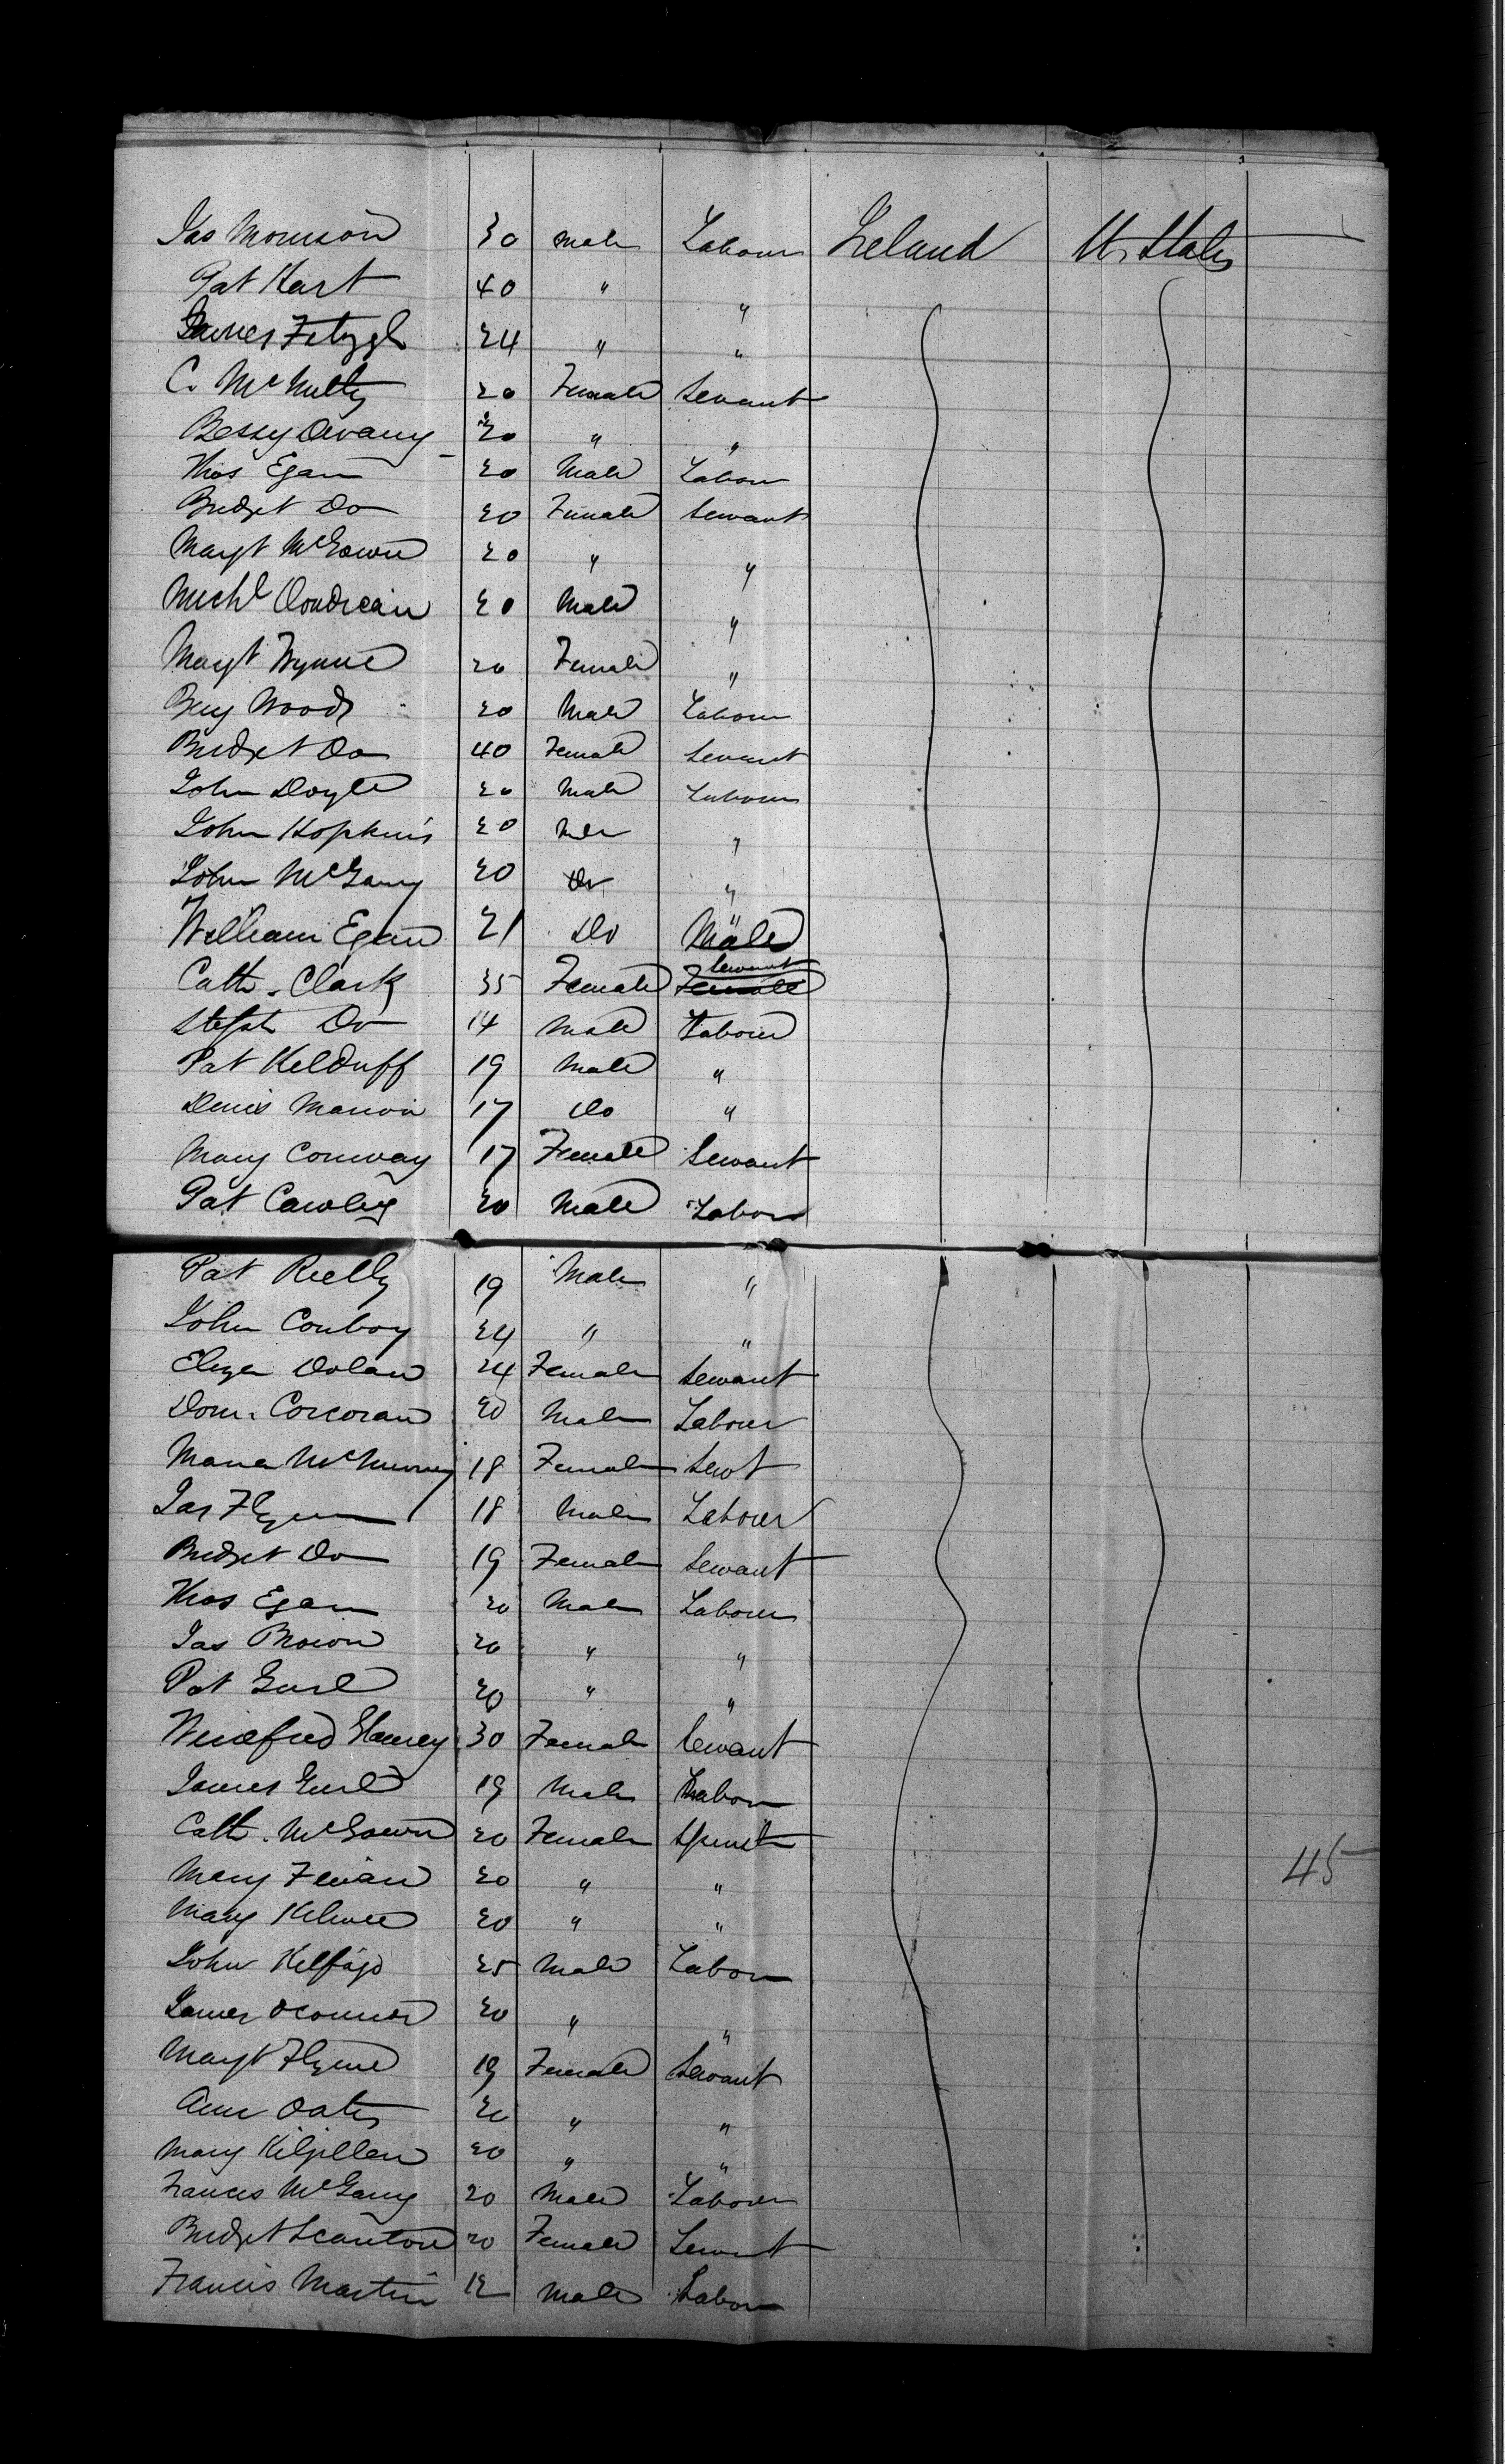 Jas Morrison 30 male Labour Ireland U. States
Pat Hart 40 " "
James Fitzgl 24 " "
C. McNulty 20 Female Servant
Bessy 20 " "
Thos Egan 20 Male Labour
Bridget Do 20 Female Servant
Margt McGowan 20 " "
Michl 20 Male "
Margt Wynne 20 Female "
Benj Woods 20 Male Labour
Bridget Do 40 Female Servant
John Doyle 20 Male Labour
John Hopkins 20 Male "
John McGarry 20 Do "
William Egan 21 Do Male
Cath. Clark 35 Female Servant
Steph Do 14 Male Labour
Pat Kelduff 19 Male "
Denis Mannion 17 Do "
Mary Conway 17 Female Servant
Pat Cawley 20 Male Labour
Pat Reelly 19 Male "
John Conboy 24 " "
Eliza Dolan 24 Female Servant
Dom. Corcoran 20 Male Labour
Maria 18 Female Servt
Jas Flynn 18 Male Labour
Bridget Do 19 Female Servant
Thos Egan 20 Male Labour
Jas Brown 20 " "
Pat 20 " "
Winefred 30 Female Servant
James 19 Male Labour
Cath. McGowan 20 Female Spinstr
Mary 20 " "
Mary 20 " "
John 25 Male Labour
James OConnor 20 " "
Margt Flynne 19 Female Servant
Ann Oates 20 " "
Mary Kilgillen 20 " "
Frances McGarry 20 Male Labour
Bridget Scanlon 20 Female Servant
Francis Martin 12 Male Labour
45